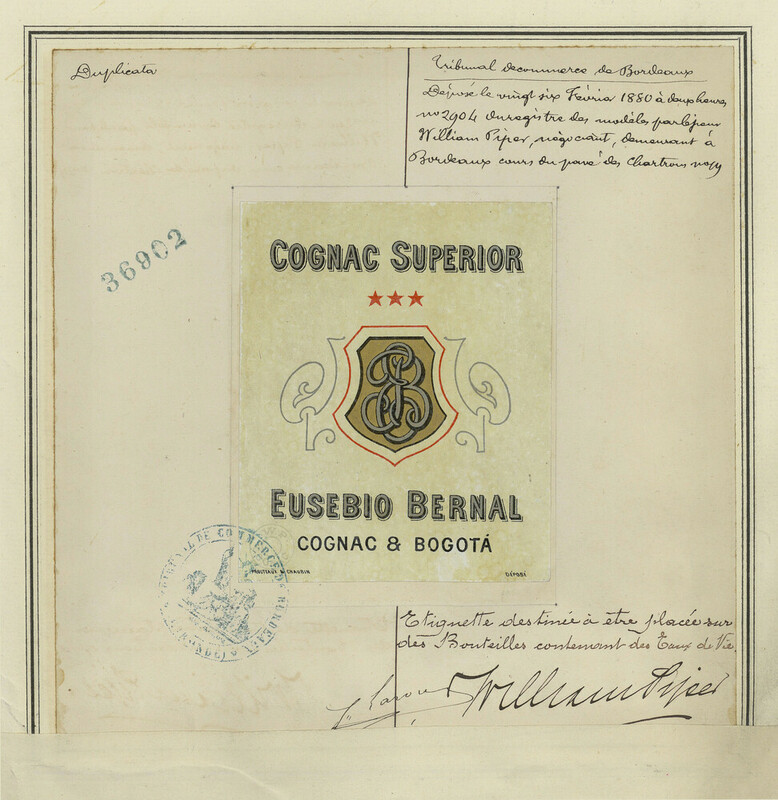 Duplicata
Tribunal de commerce de Bordeaux
Déposé le vingt six Février 1880 à deux heures
no 2904 du registre des modèles par le sieur
William Piper, négociant, demeurant à
Bordeaux cours du pavé des Chartrons no
36902
COGNAC SUPERIOR
EUSEBIO BERNAL
COGNAC & BOGOTÁ
& CHAUBIN
DÉPOSÉ
TRIBUNAL DE COMMERCE DE BORDEAUX
(GIRONDE)
Etiquette destinée à être placée sur
des Bouteilles contenant des Eaux de Vie.
William Piper